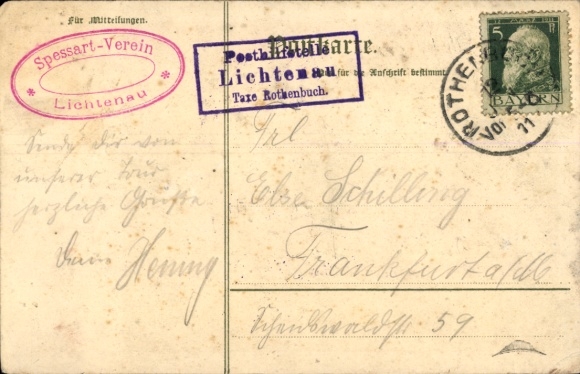 Für Mitteilungen.
Spessart-Verein
* *
Lichtenau
Posthilfstelle
Lichtenau
Taxe Rothenbuch.
Postkarte.
für die Anschrift bestimmt
5
BAYERN
ROTHENB
12
11
Sende dir von
unserer Tour
herzliche Grüße
Henny
Frl
Else Schilling
Frankfurt a/M
59